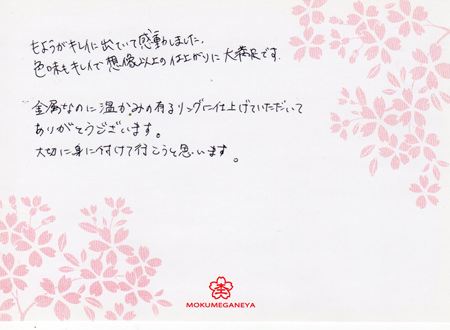 もようがキレイに出ていて感動しました。
色味もキレイで想像以上の仕上がりに大満足です。
金属なのに温かみの有るリングに仕上げていただいて
ありがとうございます。
大切に身に付けて行こうと思います。
杢
MOKUMEGANEYA